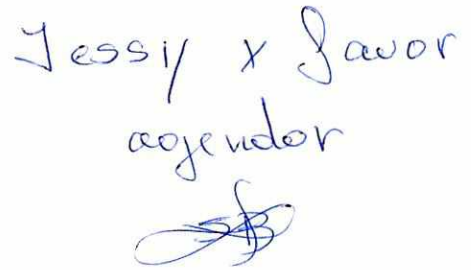 Jessi/ x favor
agendar